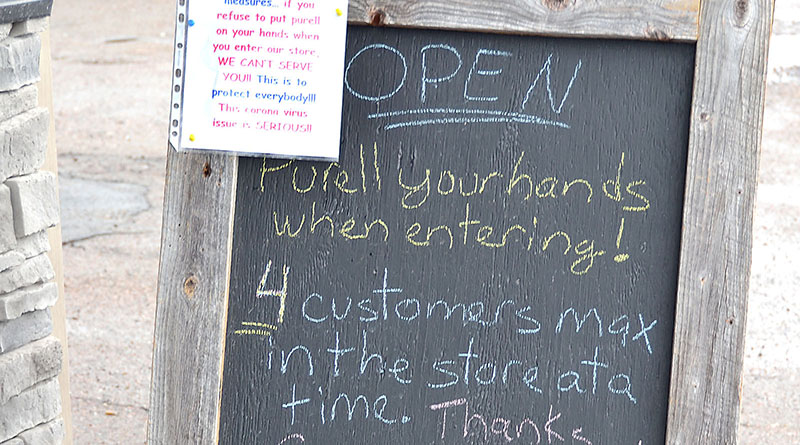 measures... if you
refuse to put purell
on your hands when
you enter our store,
WE CANT SERVE
YOU!! This is to
protect everybody!!!
This corona virus
issue is SERIOUS!!
OPEN
Purell your hands
when entering!
4 customers max
in the store at a
time. Thanks